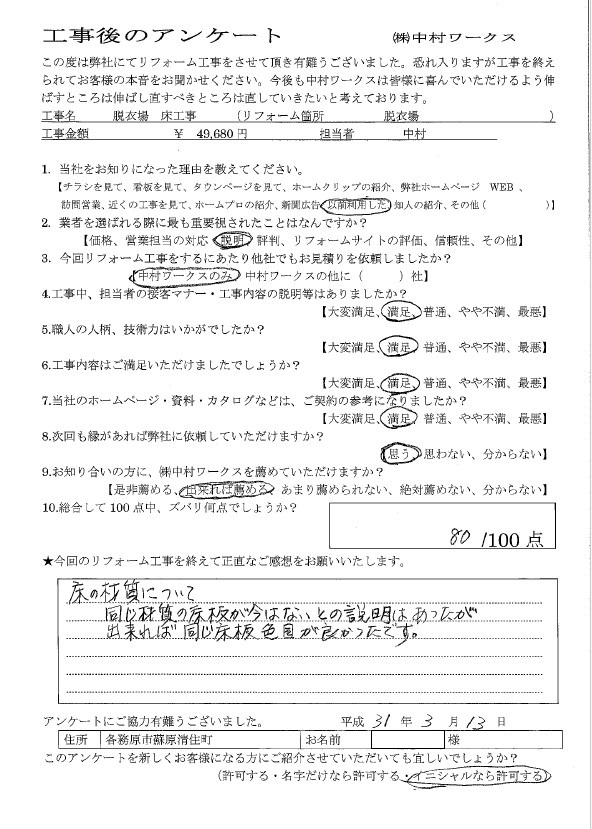 工事後のアンケート ㈱中村ワークス
この度は弊社にてリフォーム工事をさせて頂き有難うございました。恐れ入りますが工事を終え
られてお客様の本音をお聞かせください。今後も中村ワークスは皆様に喜んでいただけるよう伸
ばすところは伸ばし直すべきところは直していきたいと考えております。
工事名 脱衣場 床工事 (リフォーム箇所 脱衣場 )
工事金額 ¥ 49,680円 担当者 中村
1. 当社をお知りになった理由を教えてください。
【チラシを見て、看板を見て、タウンページを見て、ホームクリップの紹介、弊社ホームページ WEB 、
訪問営業、近くの工事を見て、ホームプロの紹介、新聞広告、以前利用した、知人の紹介、その他( )】
2. 業者を選ばれる際に最も重要視されたことはなんですか?
【価格、営業担当の対応、説明、評判、リフォームサイトの評価、信頼性、その他】
3. 今回リフォーム工事をするにあたり他社でもお見積りを依頼しましたか?
【中村ワークスのみ、中村ワークスの他に( )社】
4.工事中、担当者の接客マナー・工事内容の説明等はありましたか?
【大変満足、満足、普通、やや不満、最悪】
5.職人の人柄、技術力はいかがでしたか?
【大変満足、満足、普通、やや不満、最悪】
6.工事内容はご満足いただけましたでしょうか?
【大変満足、満足、普通、やや不満、最悪】
7.当社のホームページ・資料・カタログなどは、ご契約の参考になりましたか?
【大変満足、満足、普通、やや不満、最悪】
8.次回も縁があれば弊社に依頼していただけますか?
【思う、思わない、分からない】
9.お知り合いの方に、㈱中村ワークスを薦めていただけますか?
【是非薦める、出来れば薦める、あまり薦められない、絶対薦めない、分からない】
10.総合して100点中、ズバリ何点でしょうか?
80 /100 点
★今回のリフォーム工事を終えて正直なご感想をお願いいたします。
床の材質について
同じ材質の床板が今はないとの説明はあったが
出来れば同じ床板色目が良かったです。
アンケートにご協力有難うございました。 平成 31 年 3 月 13 日
住所 各務原市蘇原清住町 お名前 様
このアンケートを新しくお客様になる方にご紹介させていただいても宜しいでしょうか?
(許可する・名字だけなら許可する・イニシャルなら許可する)